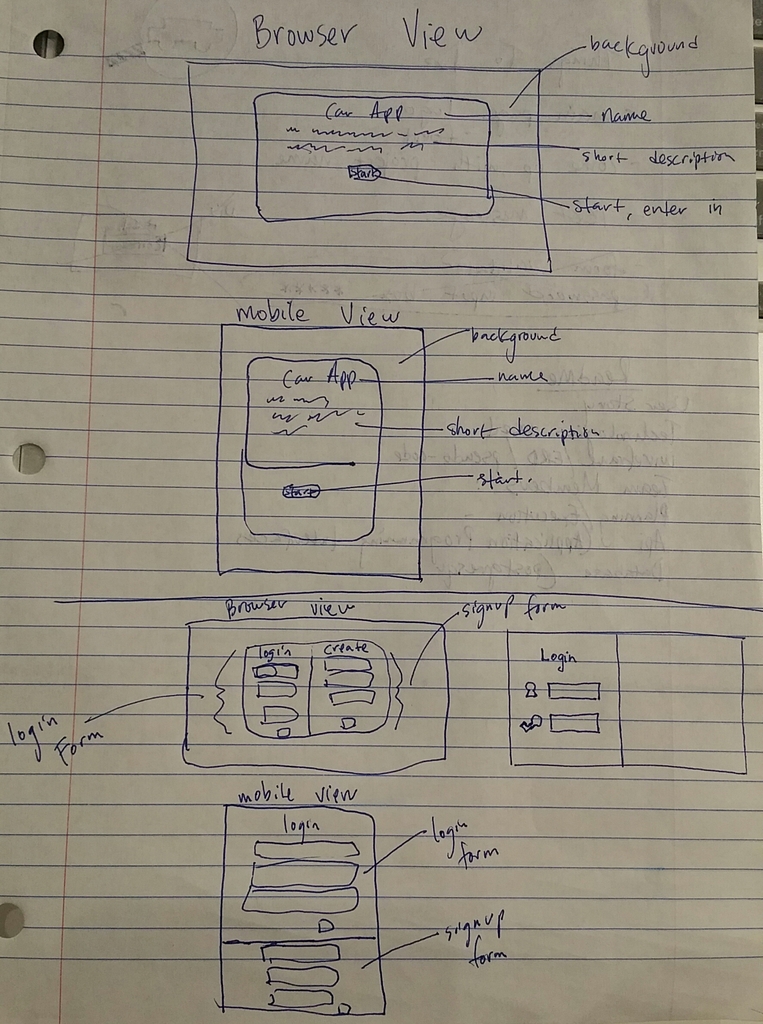 Browser View
background
Car App
name
short description
start
start, enter in
mobile View
background
Car App
name
short description
start
start.
Browser view
signup form
login
create
Login
login
form
mobile view
login
login
form
signup
form